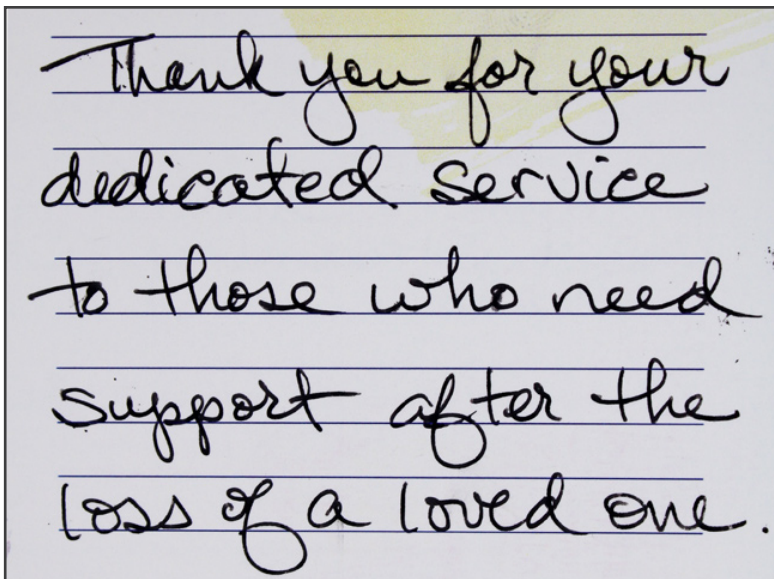 Thank you for your
dedicated service
to those who need
support after the
loss of a loved one.